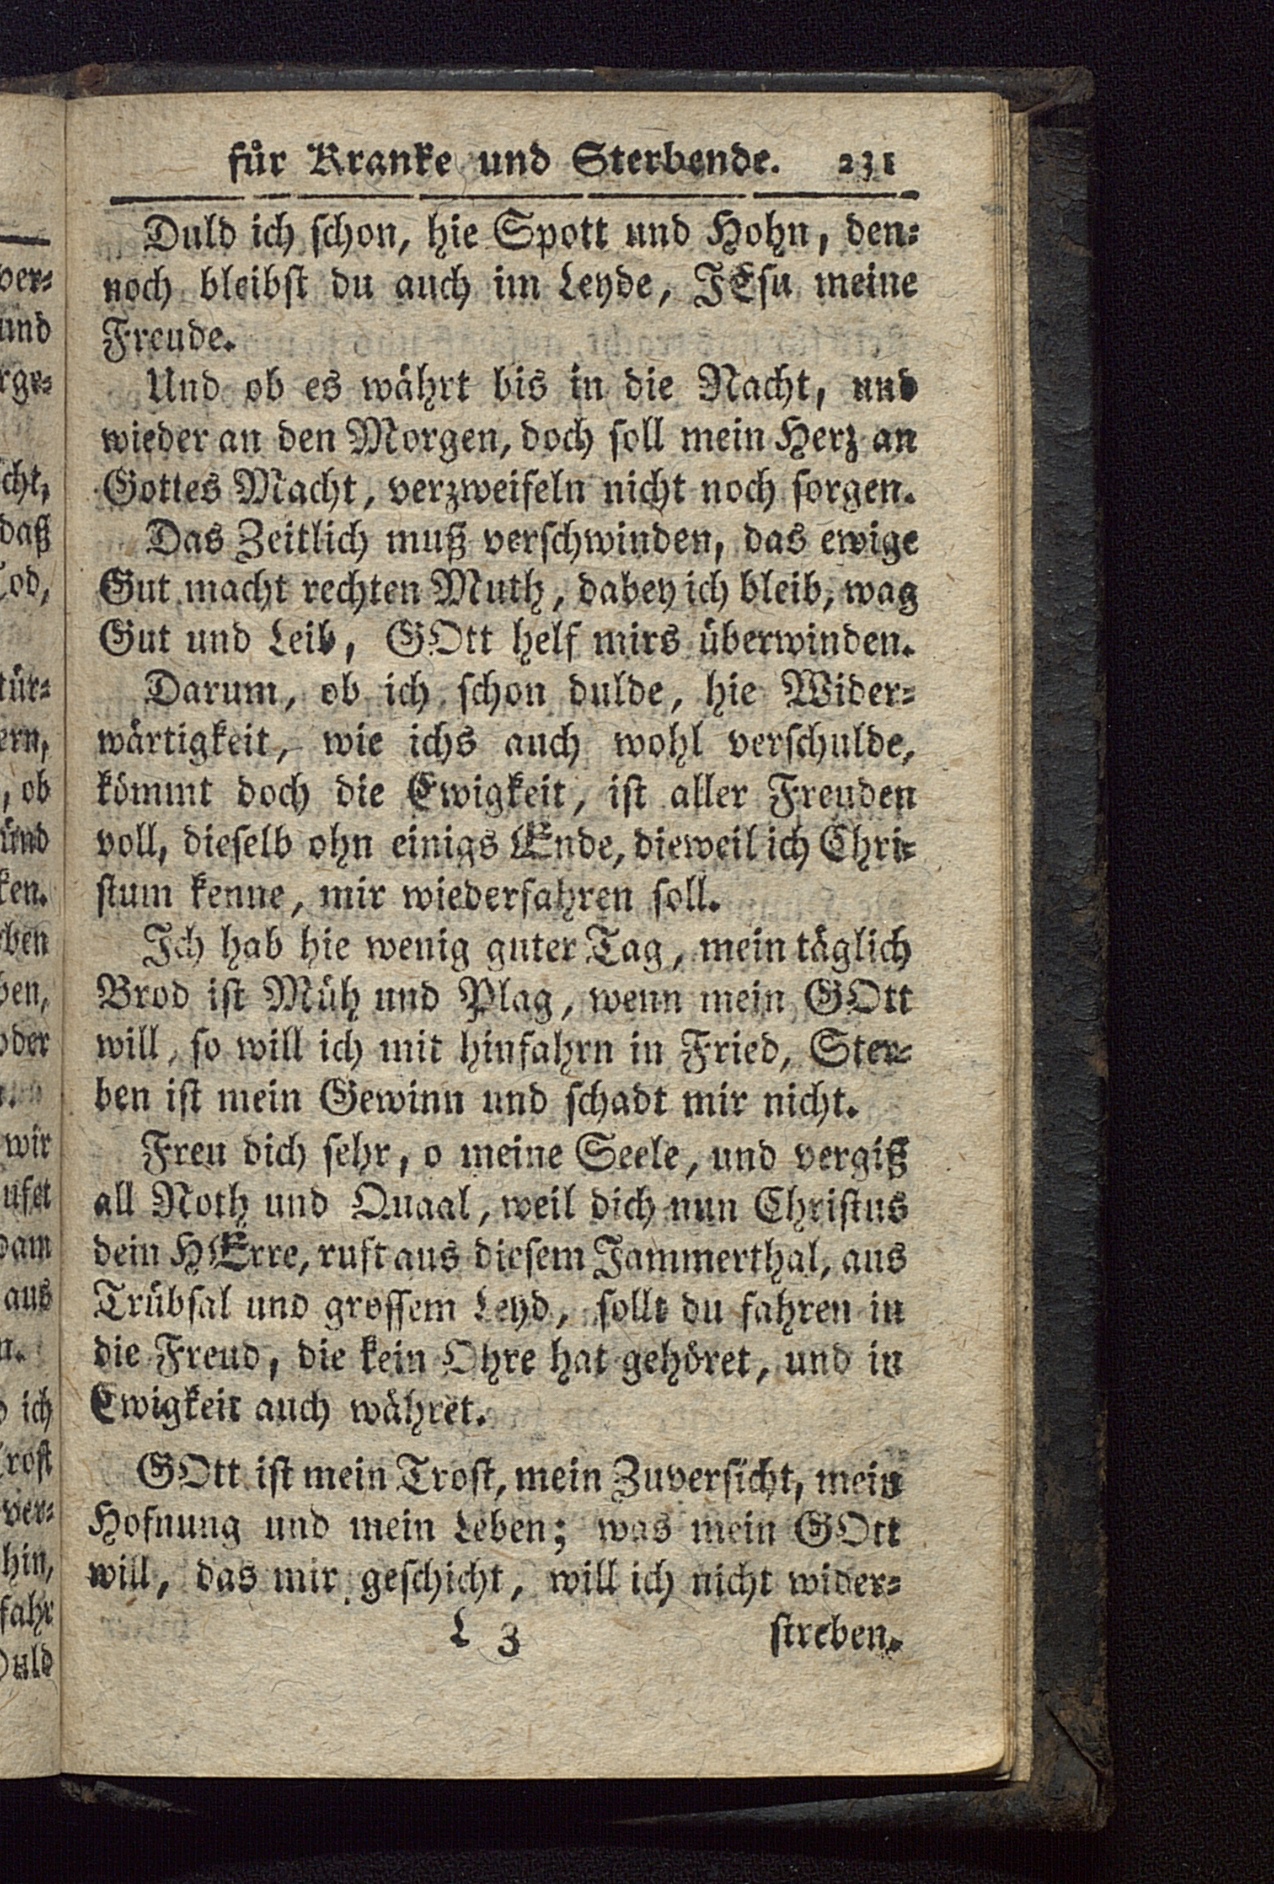 für Kranke und Sterbende. 231
Duld ich schon, hie Spott und Hohn, den-
noch bleibst du auch im Leyde, JEsu meine
Freude.
Und ob es währt bis in die Nacht, und
wieder an den Morgen, doch soll mein Herz an
Gottes Macht, verzweifeln nicht noch sorgen.
Das Zeitlich muß verschwinden, das ewige
Gut macht rechten Muth, dabey ich bleib, wag
Gut und Leib, GOtt helf mirs überwinden.
Darum, ob ich schon dulde, hie Wider-
wärtigkeit, wie ichs auch wohl verschulde,
kömmt doch die Ewigkeit, ist aller Freuden
voll, dieselb ohn einigs Ende, dieweil ich Chri-
stum kenne, mir wiederfahren soll.
Ich hab hie wenig guter Tag, mein täglich
Brod ist Müh und Plag, wenn mein GOtt
will, so will ich mit hinfahrn in Fried, Ster-
ben ist mein Gewinn und schadt mir nicht.
Freu dich sehr, o meine Seele, und vergiß
all Noth und Quaal, weil dich nun Christus
dein HErre, ruft aus diesem Jammerthal, aus
Trübsal und grossem Leyd, sollt du fahren in
die Freud, die kein Ohre hat gehöret, und in
Ewigkeit auch währet.
GOtt ist mein Trost, mein Zuversicht, mein
Hofnung und mein Leben; was mein GOtt
will, das mir geschicht, will ich nicht wider-
L 3 streben.